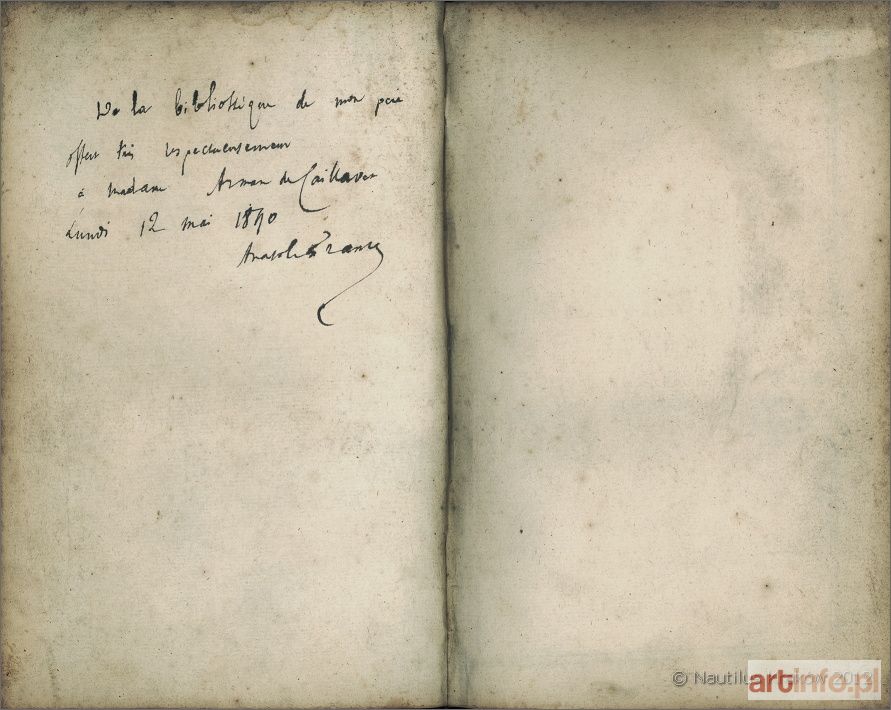 De la bibliothèque de mon père
offert très respectueusement
à madame Arman de Caillavet
Lundi 12 mai 1890
Anatole France
© Nautilus Kraków 2012
artinfo.pl